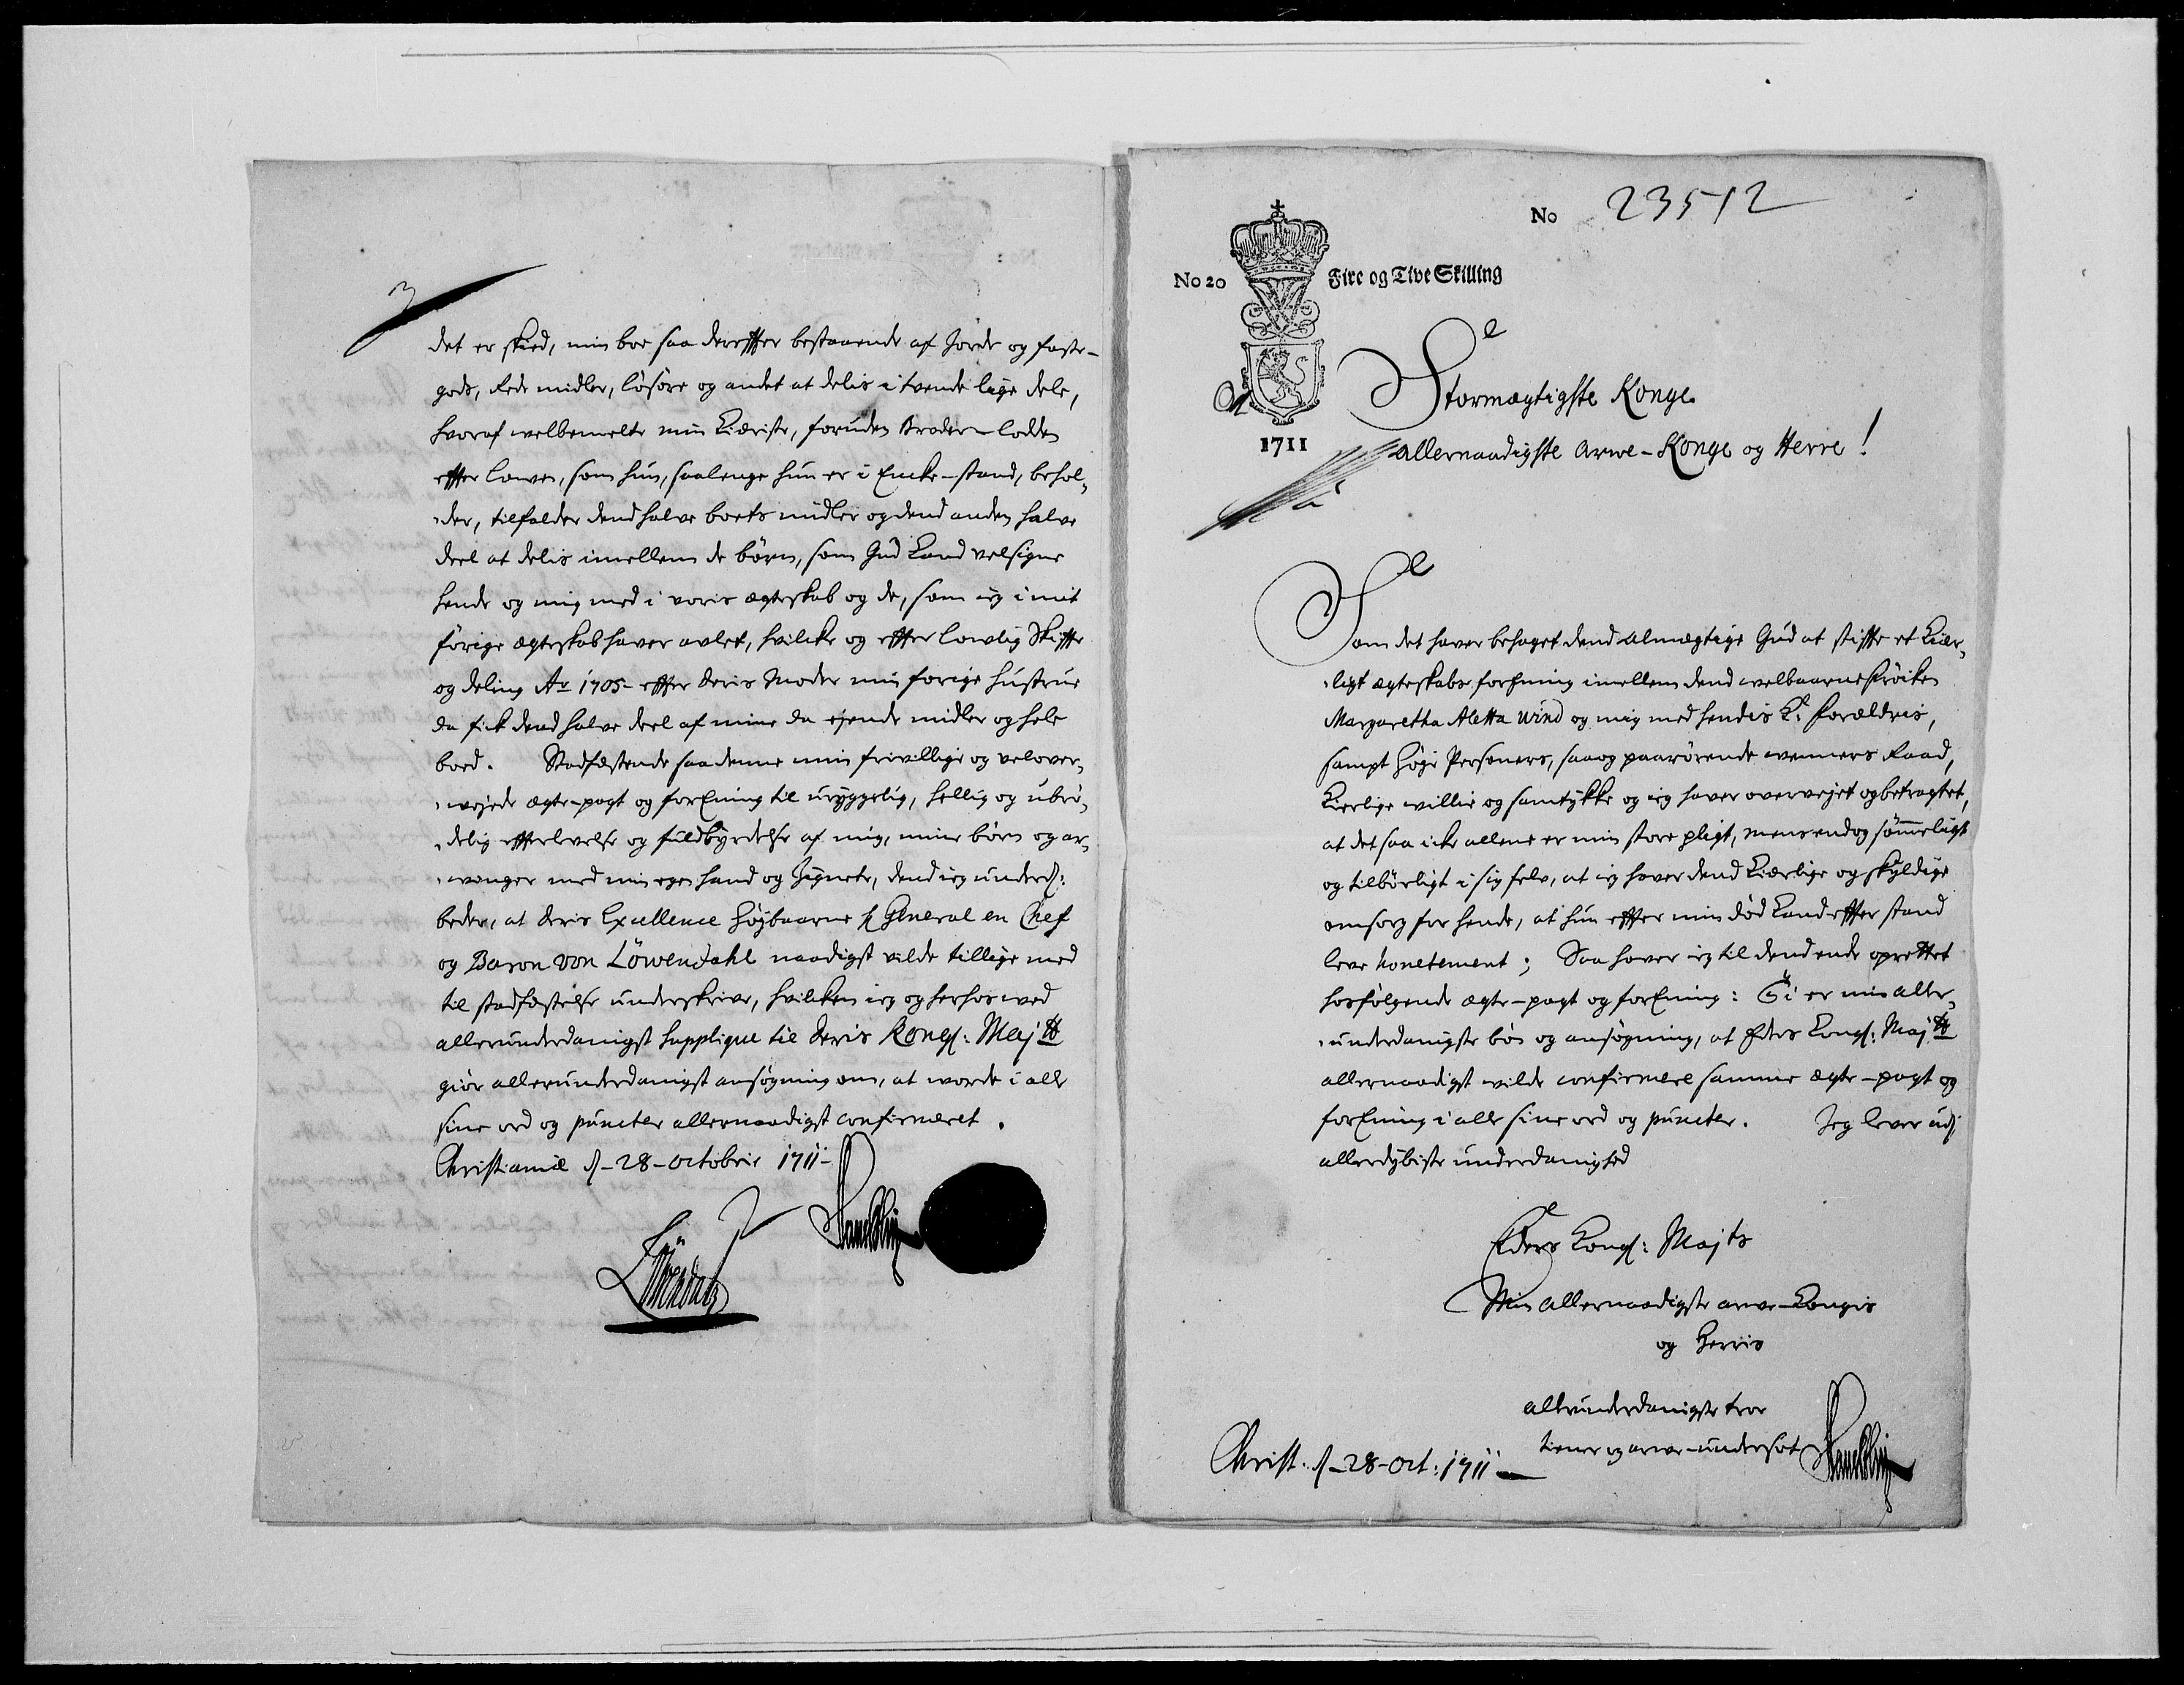 3
det er skeed, min boe saa derefter bestaaende af Jorde og faste-
gods, Rede midler, løsøre og andet at delis i tvende lige dele,
hvoraf welbemelte min Kiæriste, foruden Broder-lodden
efter lowen, som hun, saalenge hun er i Encke-stand, behol-
der, tilfalder dend halve boets midler og dend anden halve
deel at delis imellem de børn, som Gud kand velsigne
hende og mig med i voris ægteskab og de, som ieg i mit
førige ægteskab haver avlet, hvilcke og efter lowlig Skifte
og deling Ao 1705 - efter deris Moder min forige hustrue
da fick dend halve deel af mine da ejende midler og hele
boed. Stadfæstende saa denne min frivillige og velover-
wejede ægte-pagt og forEning til uryggelig, hellig og ubrø-
delig efterlevelse og fuldbyrdelse af mig, mine børn og ar-
wanger med min egen hand og Zignete, dend ieg underd:
beder, at deris Excellence Høybaarne H General en Chef
og Baron von Löwendahl naadigst vilde tillige med
til stadfæstelse underskrive, hvilken ieg og herhos med
allerunderdanigst Supplique til deris Kongl: Majtt
giør allerunderdanigst ansøgning om, at worde i alle
sine ord og puncter allernaadigst confirmeret.
Christianiæ d - 28 - Octobris 1711 -
Löwendahl
No 23512
No 20 Fire og Tive Skilling
1711
Stormægtigste Konge
allernaadigste Arve-Konge og Herre!
Som det haver behaget dend Almægtige Gud at stifte et kiær-
ligt ægteskabs forEning imellem dend welbaarne frøiken
Margaretha Aletta Wind og mig med hendis K: forældris,
sampt høge Personers, saa og paarørende wenners Raad,
kierlige willie og samtykke og ieg haver overvejet og betragtet,
at det saa icke allene er min store pligt, mens endog sømmeligt
og tilbørligt i sig selv, at ieg haver dend kiærlige og skyldige
omsorg for hende, at hun efter min død kand efter stand
leve honetement; Saa haver ieg til dend ende oprettet
hosfølgende ægte-pagt og forEning: Thi er min aller-
underdanigste bøn og ansøgning, at Eders Kongl: Majtt
allernaadigst wilde confirmere samme ægte-pagt og
forEning i alle sine ord og puncter. Jeg lever udj
allerdybiste underdanighed
Eders Kongl: Majts
Min Allernaadigste arve-Kongis
og Herris
allerunderdanigste troe
tiener og arve-undersot
Christ: d - 28 - Oct: 1711